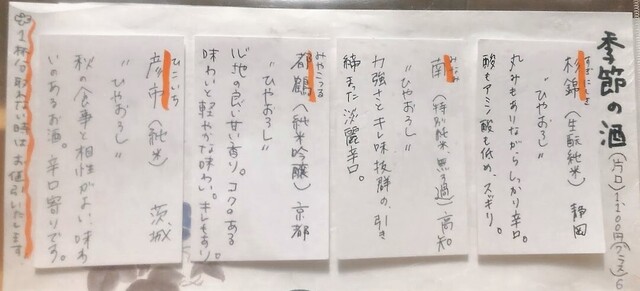 季節の酒 (片口) 1100円 (グラス) 6
すぎにしき
杉錦 (生酛純米) 静岡
"ひやおろし"
丸みもありながらしっかり辛口。
酸もアミノ酸も低め、スッキリ。
南 (特別純米、無ろ過) 高知
"ひやおろし"
力強さとキレ味抜群の引き
締まった淡麗辛口。
みやこつる
都鶴 (純米吟醸) 京都
"ひやおろし"
心地の良い甘い香り。コクのある
味わいと軽やかな味わい。キレもあり。
ひこいち
彦市 (純米) 茨城
"ひやおろし"
秋の食事と相性がよい、味わ
いのあるお酒。辛口寄りです。
1杯分取れない時はお値引いたします。